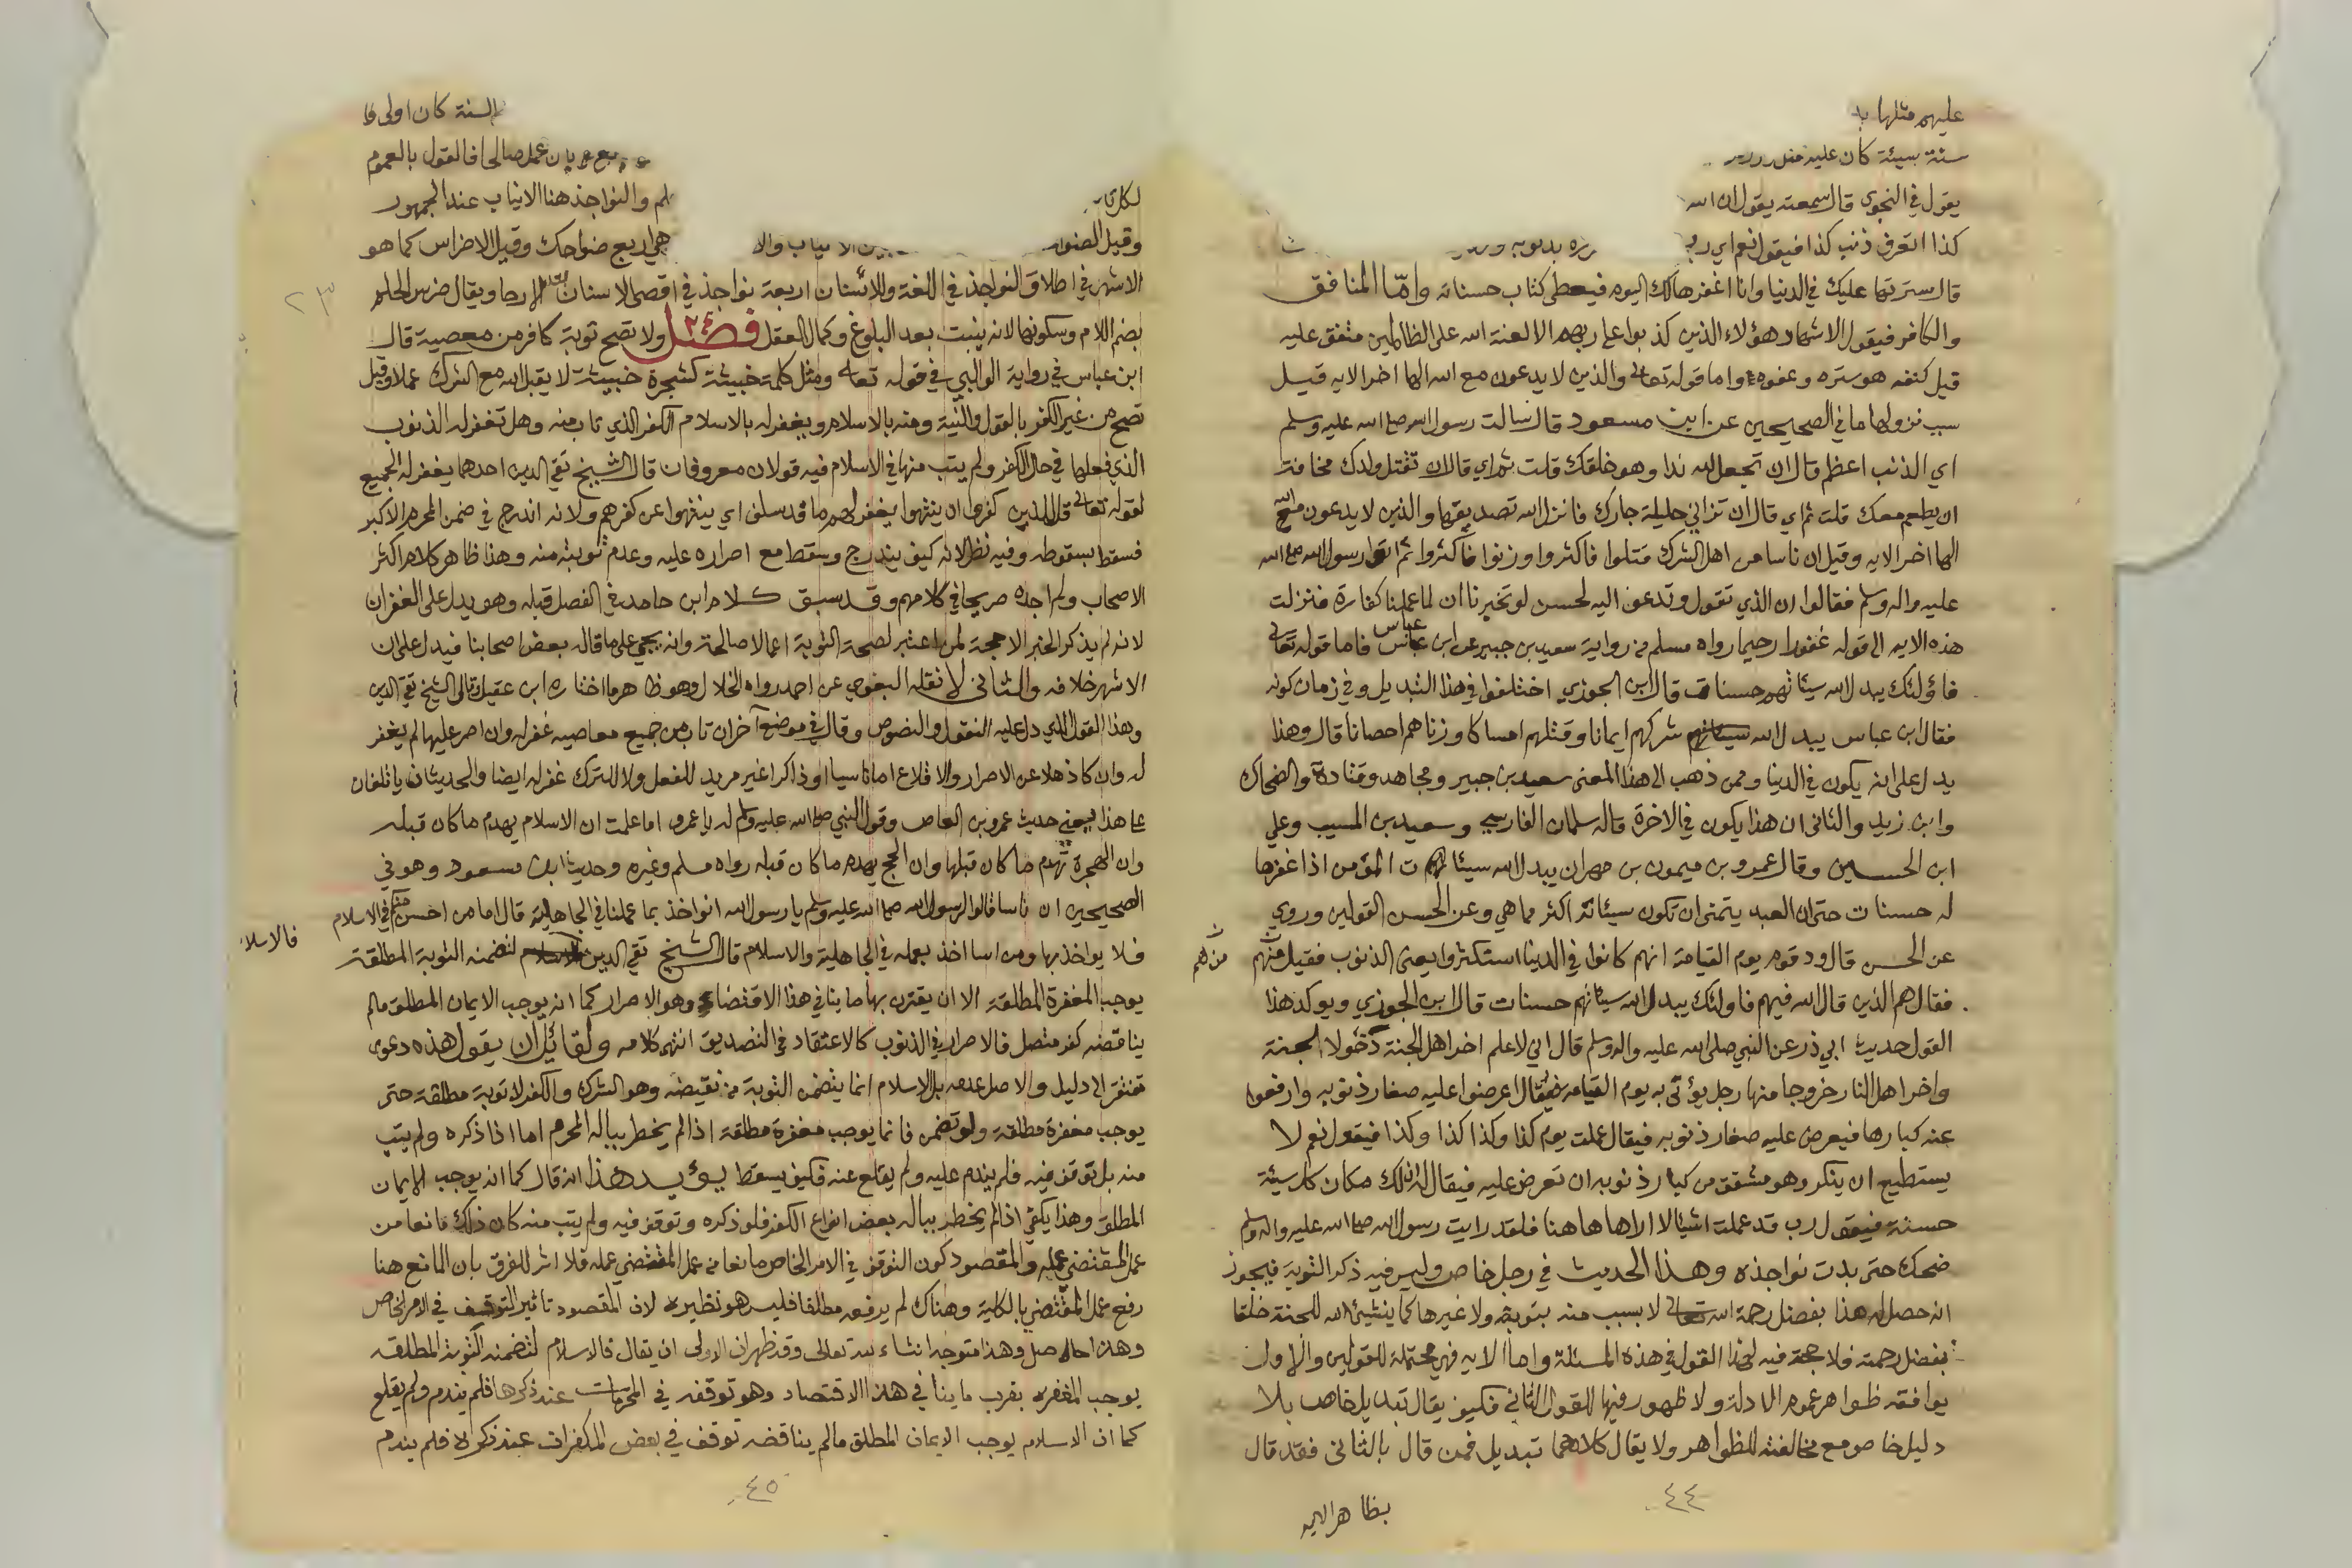 عليهم مثلها
سنة سيئة كان عليه مثل
يقول في النجوى قال سمعته يقول ان الله
كذا اتعرف ذنب كذا فيقول نعم اي رب بذنوبه
قال سترتها عليك في الدنيا وانا اغفرها لك اليوم فيعطى كتاب حسناته وامّا المنافق
والكافر فيقول الاشهاد هؤلاء الذين كذبوا على ربهم الا لعنة الله على الظالمين متفق عليه
قيل كنفه هو ستره وعفوه واما قوله تعالى والذين لا يدعون مع الله الها اخر الايه قيل
سبب نزولها ما في الصحيحين عن ابن مسعود قال سالت رسول الله صلى الله عليه وسلم
اي الذنب اعظم قال ان تجعل لله ندا وهو خلقك قلت ثم اي قال ان تقتل ولدك مخافة
ان يطعم معك قلت ثم اي قال ان تزاني حليلة جارك فانزل الله تصديقها والذين لا يدعون مع الله
الها اخر الايه وقيل ان ناسا من اهل الشرك قتلوا فاكثروا وزنوا فاكثروا ثم اتوا رسول الله صلى الله
عليه واله وسلم فقالوا ان الذي تقول وتدعو اليه لحسن لو تخبرنا ان لما عملنا كفارة فنزلت
هذه الايه الى قوله غفورا رحيما رواه مسلم من رواية سعيد بن جبير عن ابن عباس فاما قوله تعالى
فاؤلئك يبدل الله سيئاتهم حسنات قال ابن الجوزي اختلفوا في هذا التبديل وفي زمان كونه
فقال ابن عباس يبدل الله شركهم ايمانا وقتلهم امساكا وزناهم احصانا قال وهذا
يدل على انه يكون في الدنيا وممن ذهب الى هذا المعنى سعيد بن جبير ومجاهد وقتادة والضحاك
وابن زيد والثاني ان هذا يكون في الاخرة قاله سلمان الفارسي وسعيد بن المسيب وعلي
ابن الحسين وقال عمرو بن ميمون بن مهران يبدل الله سيئات المؤمن اذا غفرها
له حسنات حتى ان العبد يتمنى ان تكون سيئاته اكثر مما هي وعن الحسن القولين وروي
عن الحسن قال ود قوم يوم القيامة انهم كانوا في الدنيا استكثروا يعني الذنوب فقيل منهم
من هم
فقال هم الذين قال الله فيهم فاولئك يبدل الله سيئاتهم حسنات قال ابن الجوزي ويوكد هذا
القول حديث ابي ذر عن النبي صلى الله عليه واله وسلم قال اني لاعلم اخر اهل الجنة دخولا الجنة
واخر اهل النار خروجا منها رجل يؤتى به يوم القيامه فيقال اعرضوا عليه صغار ذنوبه وارفعوا
عنه كبارها فيعرض عليه صغار ذنوبه فيقال عملت يوم كذا وكذا كذا وكذا فيقول نعم لا
يستطيع ان ينكر وهو مشفق من كبار ذنوبه ان تعرض عليه فيقال له ان لك مكان كل سيئة
حسنة فيقول رب قد عملت اشيا لا اراها هاهنا فلقد رايت رسول الله صلى الله عليه واله وسلم
ضحك حتى بدت نواجذه وهذا الحديث في رجل خاص وليس فيه ذكر التوبة فيجوز
انه حصل له هذا بفضل رحمة الله تعالى لا بسبب منه بتوبة ولا غيرها كما ينشئ الله للجنة خلقا
بفضل رحمته فلا حجة فيه لهذا القول في هذه المسئلة واما الايه فهي محتملة للقولين والاول
يوافقه ظواهر عموم الادلة ولا ظهور فيها للقول الثاني فكيف يقال تبديل خاص بلا
دليل خاص مع مخالفته للظواهر ولا يقال كلاهما تبديل فمن قال بالثاني فقد قال
بظاهر الايه
٤٤
السنة كان اولى
عمل صالحا فالقول بالعموم
لكل والنواجذ هنا الانياب عند الجمهور
وقيل الانياب هي اربع ضواحك وقيل الاضراس كما هو
الاشهر في اطلاق النواجذ في اللغة وللانسان اربعة نواجذ في اقصى الاسنان بعد الارحا ويقال ضرس الحلم
٢٣
بضم اللام وسكونها لانه ينبت بعد البلوغ وكمال العقل فصل ٢٤ ولا تصح توبة كافر من معصية قال
ابن عباس في رواية الوالبي في قوله تعالى ومثل كلمة خبيثة كشجرة خبيثة لا يقبل الله مع الشرك عملا وقيل
تصح من غير الكفر بالقول والنية ومنه بالاسلام ويغفر له بالاسلام الكفر الذي تاب منه وهل تغفر له الذنوب
الذي فعلها في حال الكفر ولم يتب منها في الاسلام فيه قولان معروفان قال الشيخ تقي الدين احدهما يغفر له الجميع
لقوله تعالى قل للذين كفروا ان ينتهوا يغفر لهم ما قد سلف اي ينتهوا عن كفرهم ولانه اندرج في ضمن المحرم الاكبر
فسقط بسقوطه وفيه نظر لانه كيف يندرج ويسقط مع اصراره عليه وعدم توبته منه وهذا ظاهر كلام اكثر
الاصحاب ولم اجده صريحا في كلامهم وقد سبق كلام ابن حامد في الفصل قبله وهو يدل على الغفران
لانه لم يذكر الخبر الا حجة لمن اعتبر لصحة التوبة اعمالا صالحة وانه يجي على ما قاله بعض اصحابنا فيدل على ان
الاشهر خلافه والثاني لا نقله البغوي عن احمد رواه الخلال وهو ظاهر ما اختاره ابن عقيل وقال الشيخ تقي الدين
وهذا القول الذي دل عليه النقول والنصوص وقال في موضع آخر ان تاب من جميع معاصيه غفر له وان اصر عليها لم يغفر
له وان كان ذهلا عن الاصرار والاقلاع اما ناسيا او ذاكرا غير مريد للفعل ولا للترك غفر له ايضا والحديثان ياتلفان
على هذا يعني حديث عمرو بن العاص وقول النبي صلى الله عليه وسلم له يا عمرو اما علمت ان الاسلام يهدم ما كان قبله
وان الهجرة تهدم ما كان قبلها وان الحج يهدم ما كان قبله رواه مسلم وغيره وحديث ابن مسعود وهو في
الصحيحين ان ناسا قالوا لرسول الله صلى الله عليه وسلم يا رسول الله انواخذ بما عملنا في الجاهلية قال اما من احسن منكم في الاسلام
فلا يواخذ بها ومن اسا اخذ بعمله في الجاهلية والاسلام قال الشيخ تقي الدين لتضمنه التوبة المطلقة
فالاسلا
يوجب المغفرة المطلقة الا ان يقترن بها ما ينافي هذا الاقتضاء وهو الاصرار كما انه يوجب الايمان المطلق مالم
يناقضه كفر متصل فالاصرار في الذنوب كالاعتقاد في التصديق انتهى كلامه ولقائل ان يقول هذه دعوى
تفتقر الى دليل والاصل عدمه بل الاسلام انما يتضمن التوبة من نقيضه وهو الشرك والكفر لا توبة مطلقة حتى
يوجب مغفرة مطلقة ولو تضمن فانما يوجب مغفرة مطلقة اذا لم يخطر بباله المحرم اما اذا ذكره ولم يتب
منه بل توقف فيه فلم يندم عليه ولم يقلع عنه فكيف يسقط يؤيد هذا انه قال كما انه يوجب الايمان
المطلق وهذا يكفي اذا لم يخطر بباله بعض انواع الكفر فلو ذكره وتوقف فيه ولم يتب منه كان ذلك مانعا من
عمل المقتضي عمله والمقصود كون التوقف في الامر الخاص مانعا من عمل المقتضي عمله فلا اثر للفرق بان المانع هنا
رفع عمل المقتضي بالكلية وهناك لم يرفعه مطلقا فليس هو نظيره لان المقصود تاثير التوقف في الامر الخاص
وهذا حاصل وهذا متوجه انشاء الله تعالى وقد ظهر ان الاولى ان يقال فالاسلام لتضمنه التوبة المطلقه
يوجب المغفره بقرب ما ينافي هذا الاقتصاد وهو توقفه في المحرمات عند ذكرها فلم يندم ولم يقلع
كما ان الاسلام يوجب الايمان المطلق مالم يناقضه توقف في بعض المكفرات عند ذكره فلم يندم
٤٥